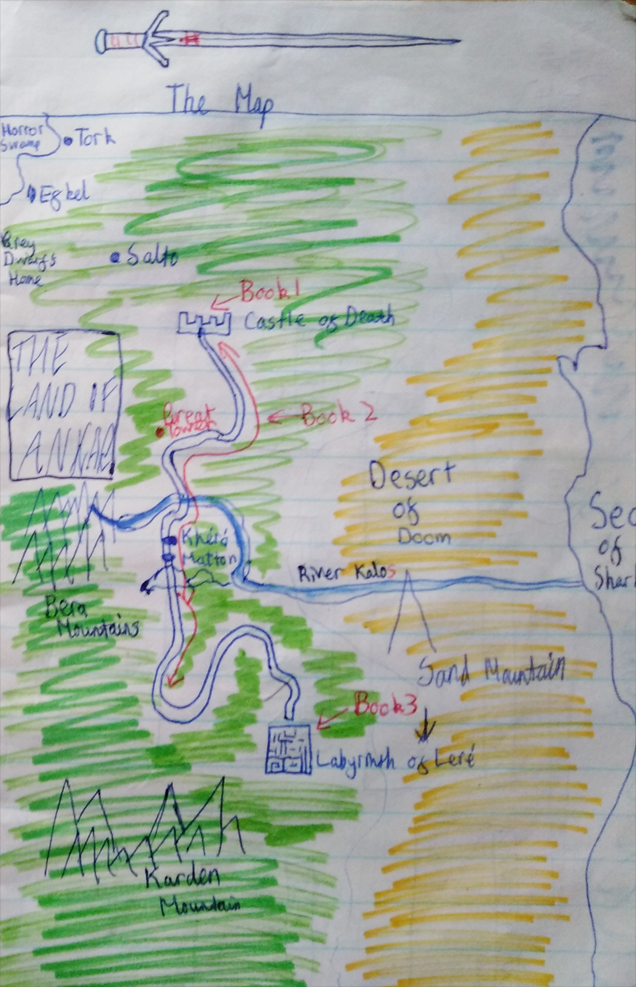 The Map
Horror
Swamp
Tork
Egkel
Grey
Dwarfs
Home
Salto
Book 1
Castle of Death
THE
LAND OF
Great
Tower
Book 2
Desert
of
Doom
Khéré
Matton
River Kalos
Sea
of
Shar
Bera
Mountains
Sand Mountain
Book 3
Labyrinth of Leré
Karden
Mountain